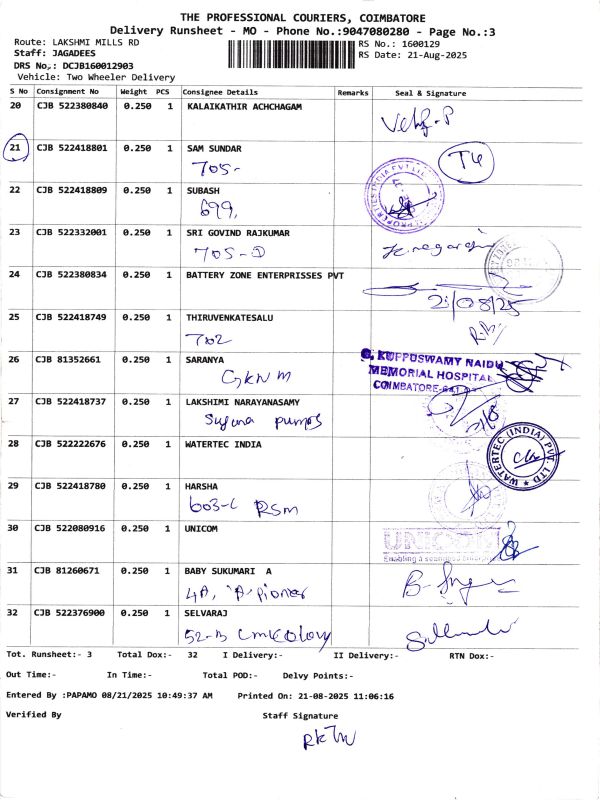 THE PROFESSIONAL COURIERS, COIMBATORE
Delivery Runsheet - MO - Phone No.:9047080280 - Page No.:3
Route: LAKSHMI MILLS RD
RS No.: 1600129
Staff: JAGADEES
RS Date: 21-Aug-2025
DRS No,: DCJB160012903
Vehicle: Two Wheeler Delivery
S No Consignment No Weight PCS Consignee Details Remarks Seal & Signature
20 CJB 522380840 0.250 1 KALAIKATHIR ACHCHAGAM
21 CJB 522418801 0.250 1 SAM SUNDAR
705-
22 CJB 522418809 0.250 1 SUBASH
699,
23 CJB 522332001 0.250 1 SRI GOVIND RAJKUMAR
705-D
24 CJB 522380834 0.250 1 BATTERY ZONE ENTERPRISSES PVT
21/08/25
25 CJB 522418749 0.250 1 THIRUVENKATESALU
702
26 CJB 81352661 0.250 1 SARANYA
GKNM
G. KUPPUSWAMY NAIDU
MEMORIAL HOSPITAL
COIMBATORE-641
27 CJB 522418737 0.250 1 LAKSHIMI NARAYANASAMY
Suguna pumps
28 CJB 522222676 0.250 1 WATERTEC INDIA
WATERTEC (INDIA) PVT. LTD
29 CJB 522418780 0.250 1 HARSHA
603-C RSM
30 CJB 522080916 0.250 1 UNICOM
UNICOM
31 CJB 81260671 0.250 1 BABY SUKUMARI A
4A,
32 CJB 522376900 0.250 1 SELVARAJ
52-B
Tot. Runsheet:- 3 Total Dox:- 32 I Delivery:- II Delivery:- RTN Dox:-
Out Time:- In Time:- Total POD:- Delvy Points:-
Entered By :PAPAMO 08/21/2025 10:49:37 AM Printed On: 21-08-2025 11:06:16
Verified By Staff Signature